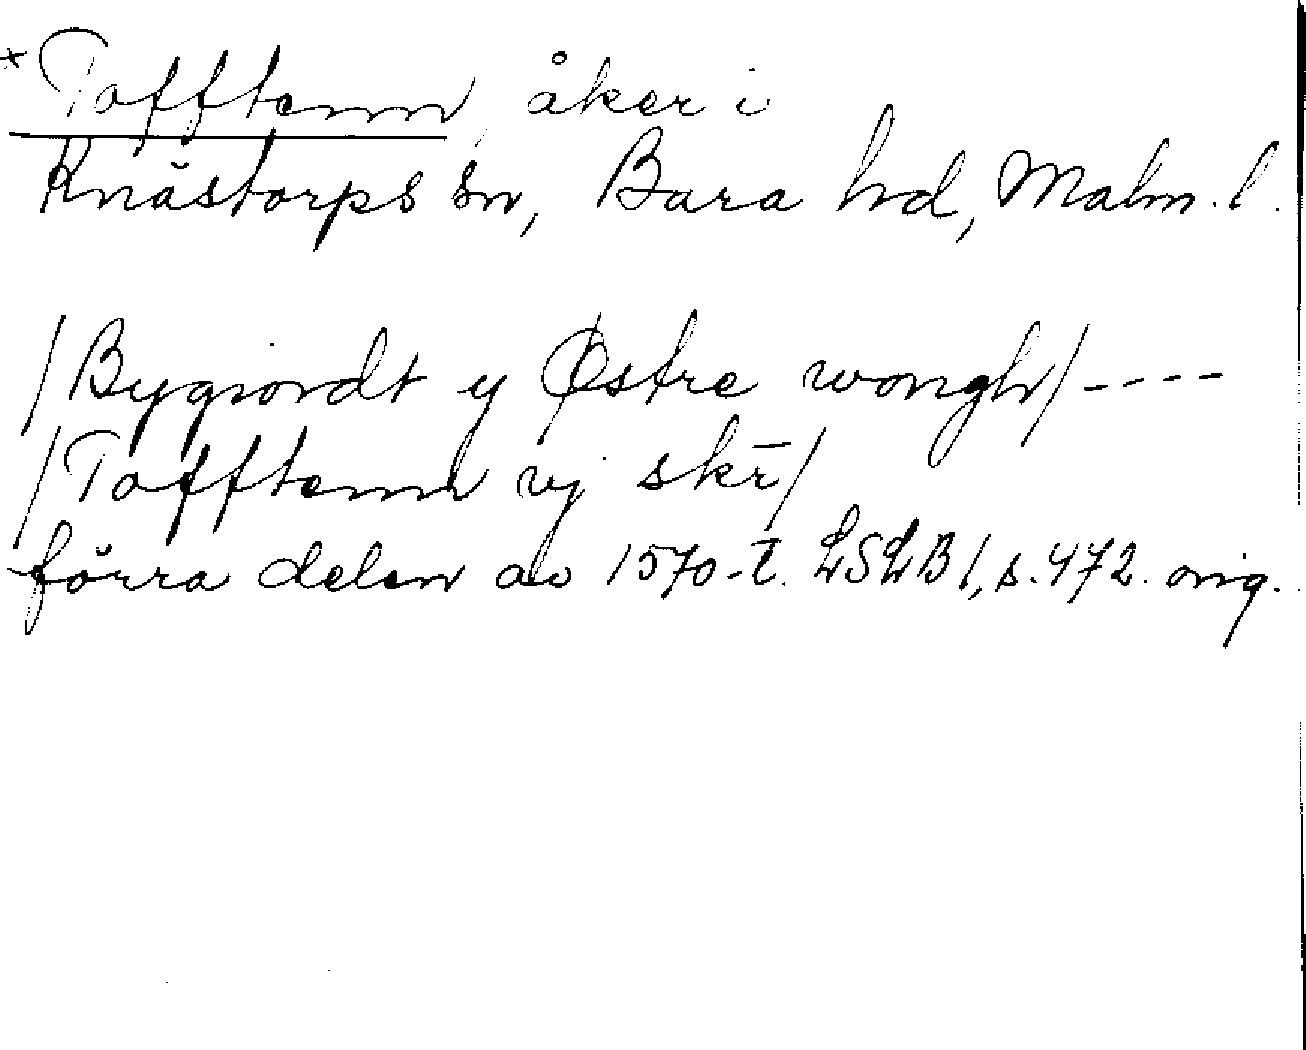 * Tofftenn, åker i
Knästorps sn, Bara hd, Malm. l.
/Bygiordt y Østre wongh/ - - - -
/Tofftenn vj skr̄/
förra delen av 1570-t. LSLB1, s. 472. orig.